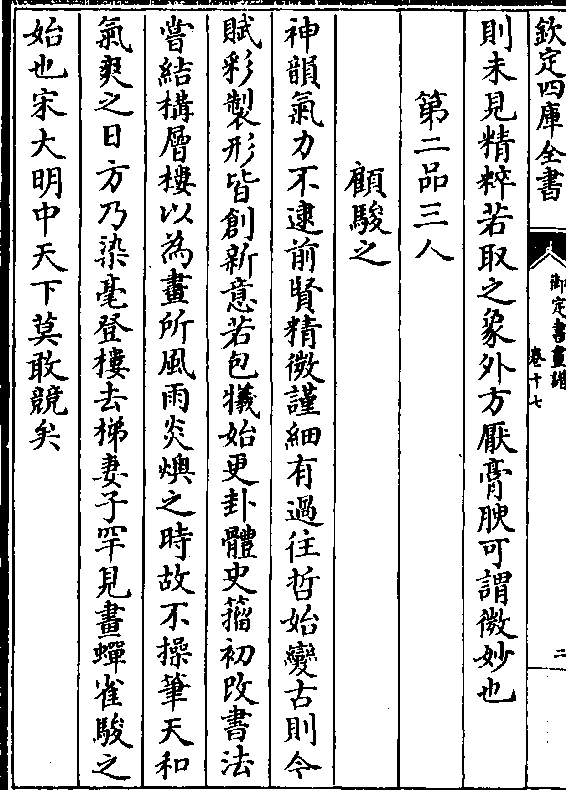 欽定四庫全書
御定書畫譜
卷十七
二
則未見精粹若取之象外方厭膏腴可謂微妙也
第二品三人
顧駿之
神韻氣力不逮前賢精微謹細有過往哲始變古則今
賦彩製形皆創新意若包犧始更卦體史籀初改書法
嘗結構層樓以為畫所風雨炎燠之時故不操筆天和
氣爽之日方乃染毫登樓去梯妻子罕見畫蟬雀駿之
始也宋大明中天下莫敢競矣